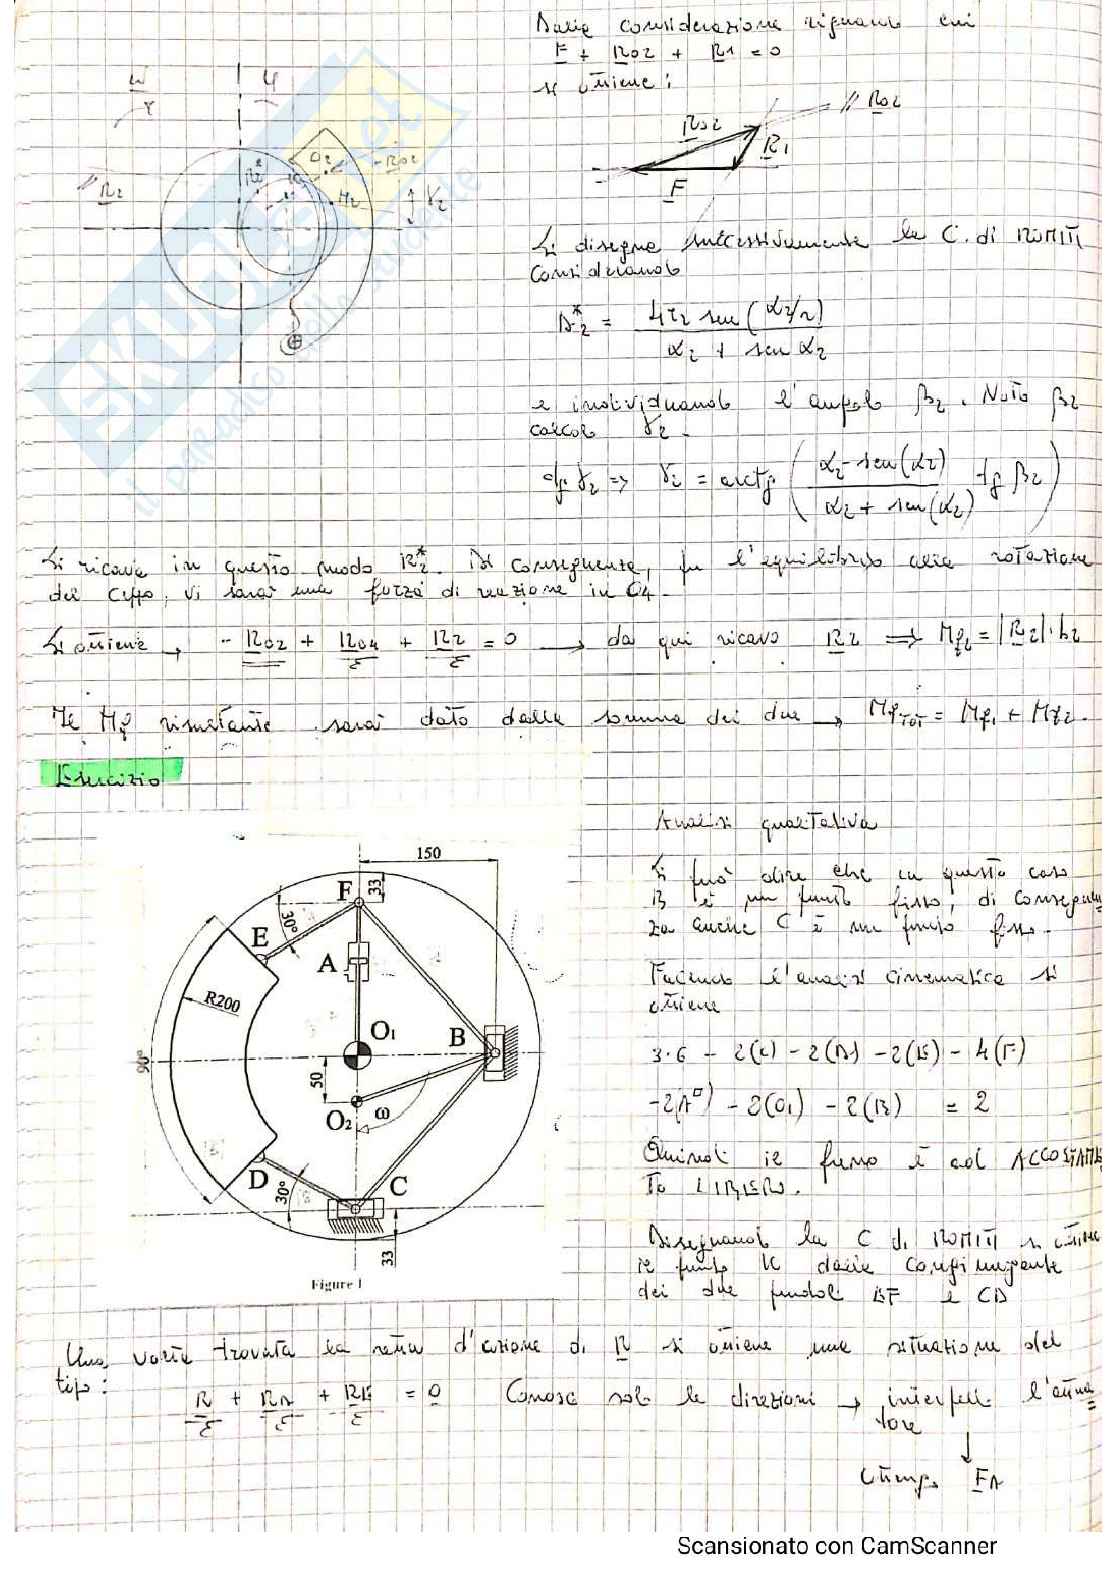 Dalle considerazione riguardo cui
F + Ro2 + R1 = 0
si ottiene:
// Ro2
Ro2
R1
F
ω
// R2
O2
-Ro2
R2*
M2
γ2
Si disegna successivamente la C. di ROMITI
considerando
D2* = 4 r2 sen (α2/2) / α2 + sen α2
e individuando l'angolo β2. Noto β2
calcolo γ2.
γ2 => γ2 = arctg ( α2 - sen(α2) / α2 + sen(α2) tg β2 )
Si ricava in questo modo R2*. Di conseguenza, per l'equilibrio alla rotazione
del ceppo, vi sarà una forza di reazione in O4.
Si ottiene → - Ro2 + Ro4 + R2 = 0 → da qui ricavo R2 => Mf2 = |R2| · b2
Il Mf risultante sarà dato dalla somma dei due → MfTOT = Mf1 + Mf2.
Esercizio
Analisi qualitativa
Si può dire che in questo caso
B è un punto fisso, di conseguen
za anche C è un punto fisso.
Facendo l'analisi cinematica si
ottiene
3·6 - 2(C) - 2(D) - 2(E) - 4(F)
-2(A) - 2(O1) - 2(B) = 2
Quindi il freno è ad ACCOSTAMEN
TO LIBERO.
Disegnando la C di ROMITI si ottiene
il punto K dalla congiungente
dei due pendoli EF e CD
150
33
F
30°
E
A
R200
O1
B
90°
50
O2
ω
D
30°
C
33
Figure 1
Una volta trovata la retta d'azione di R si ottiene una situazione del
tipo:
R + RD + RE = 0 Conosco solo le direzioni → interpello l'attua
tore
ottengo FA
EKUSE
il paradiso dello studente
Scansionato con CamScanner